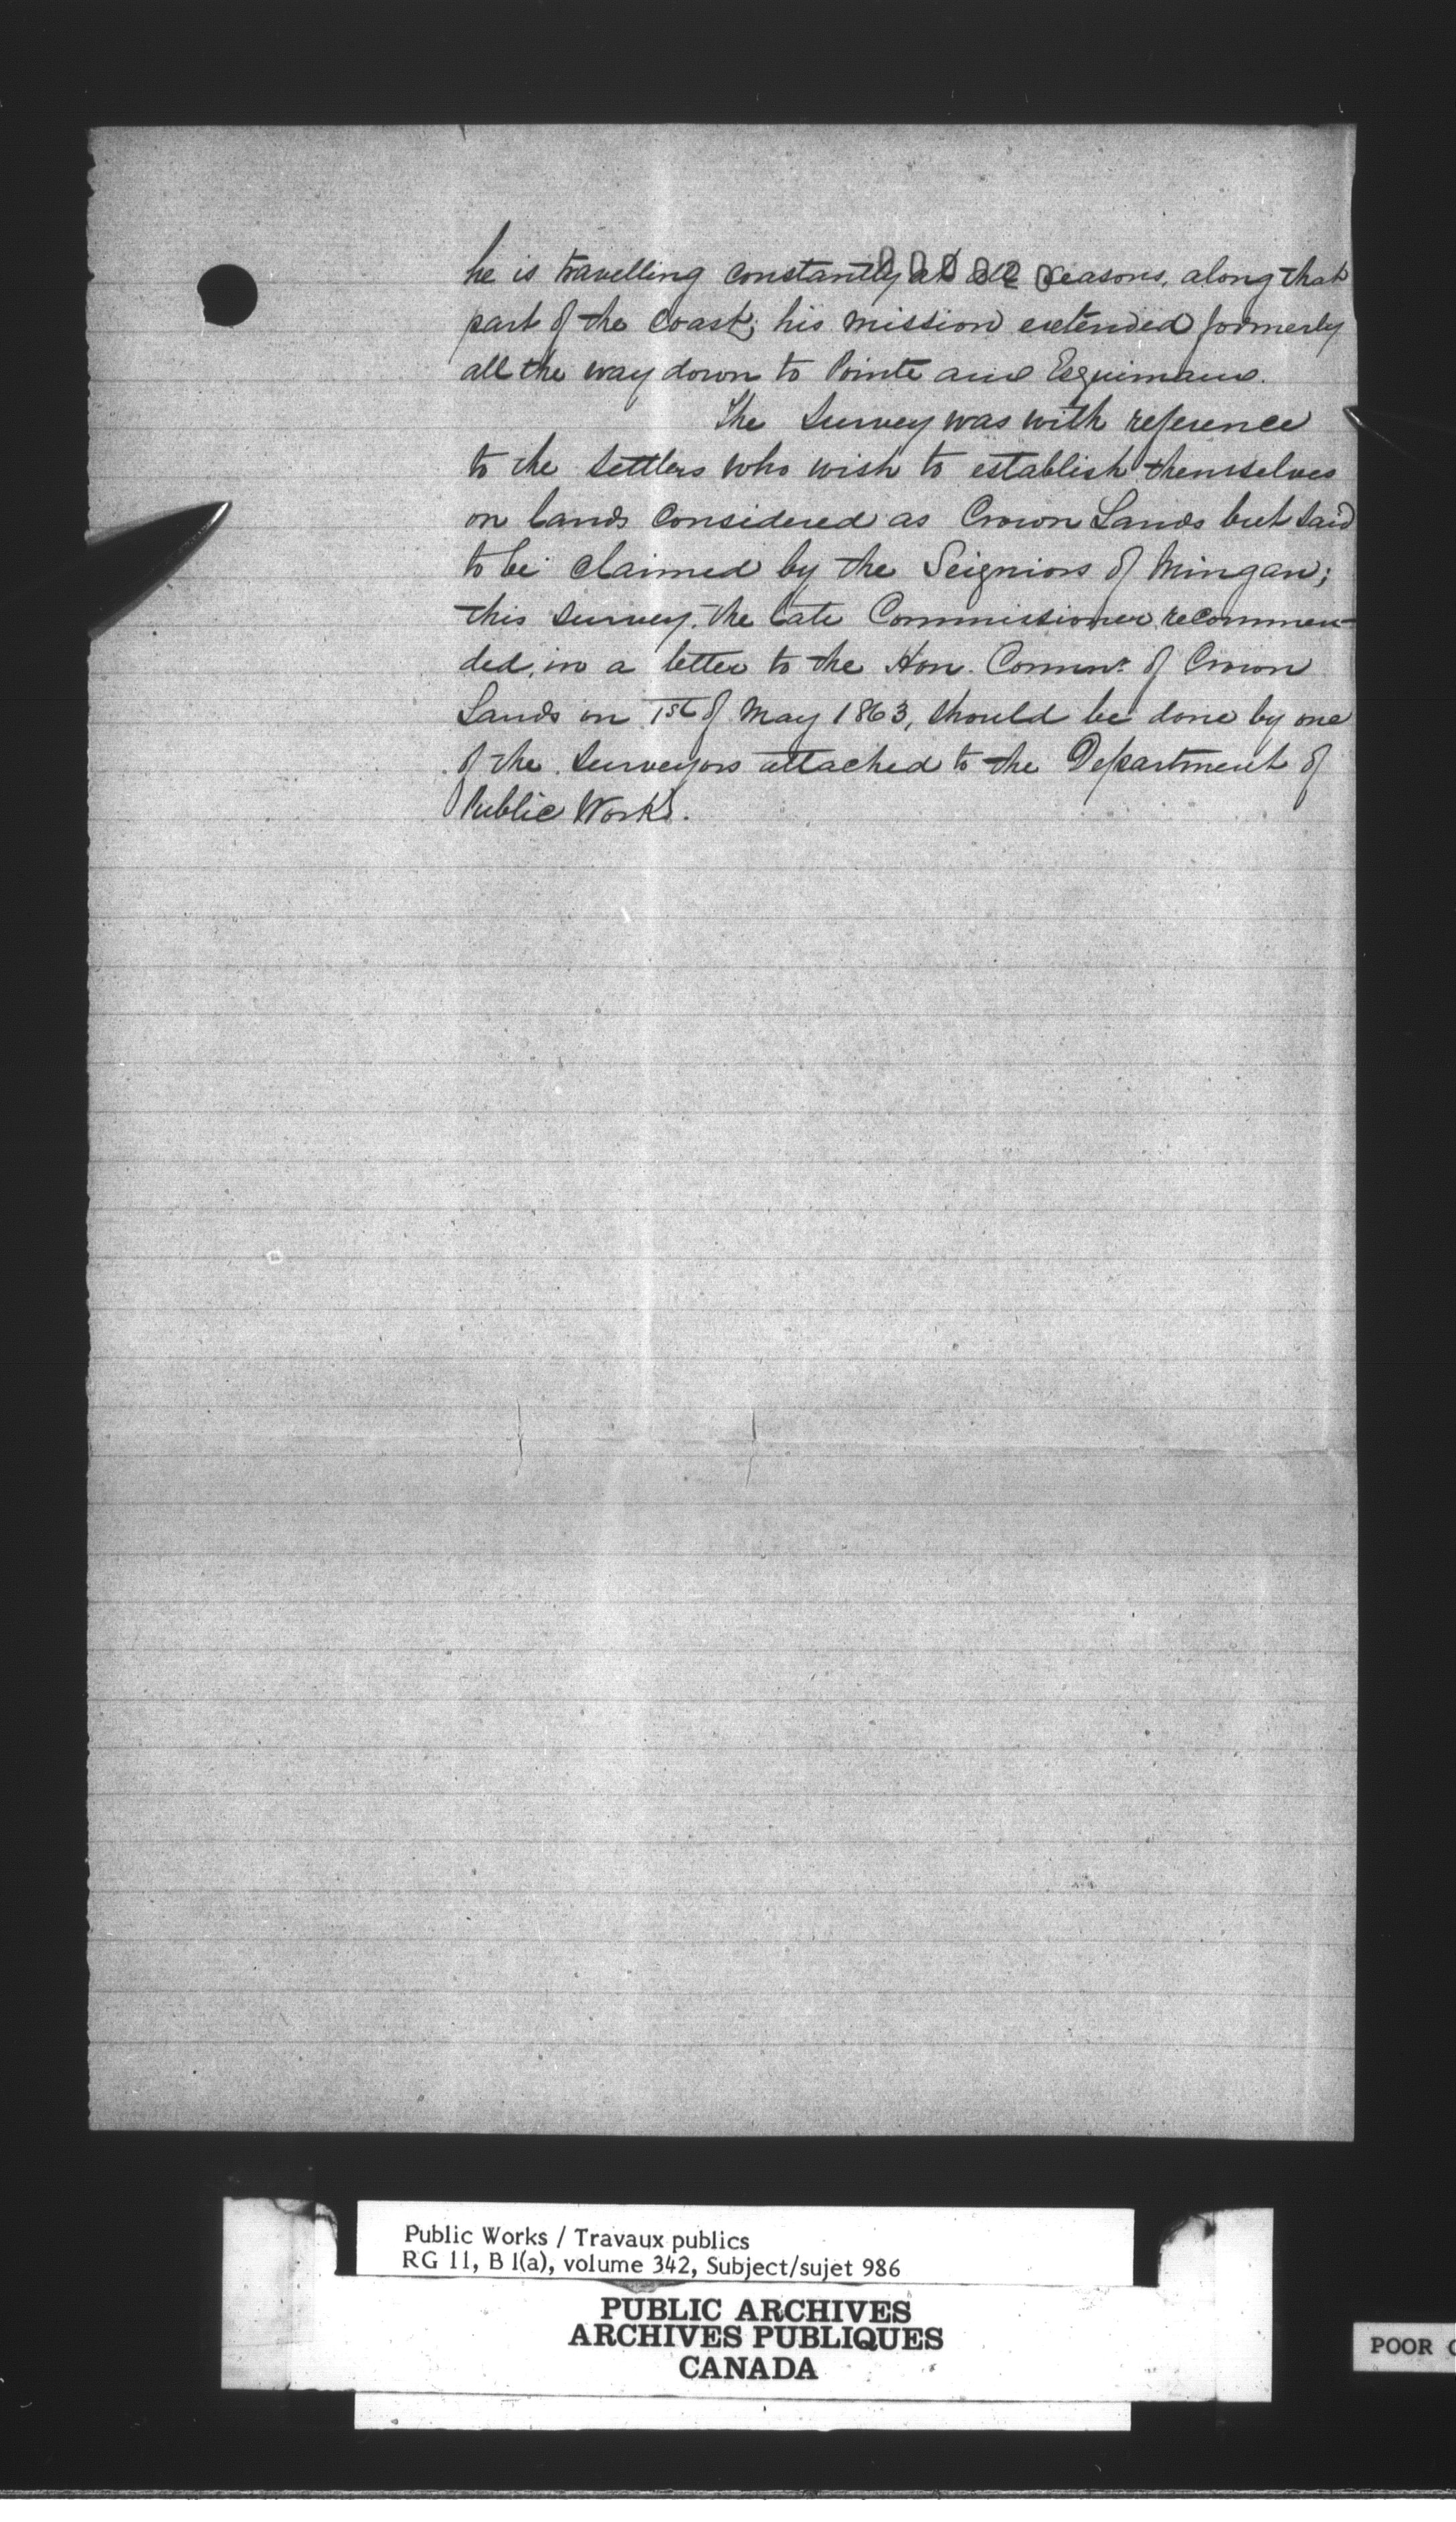 he is travelling constantly at all seasons, along that
part of the coast; his mission extended formerly
all the way down to Pointe aux Esquimaux.
The Survey was with reference
to the Settlers who wish to establish themselves
on lands considered as Crown Lands but said
to be claimed by the Seigniors of Mingan;
this survey, the late Commissioner recommen-
ded, in a letter to the Hon. Commr. of Crown
Lands on 1st of May 1863, should be done by one
of the Surveyors attached to the Department of
Public Works.
Public Works / Travaux publics
RG 11, B 1(a), volume 342, Subject/sujet 986
PUBLIC ARCHIVES
ARCHIVES PUBLIQUES
CANADA
POOR